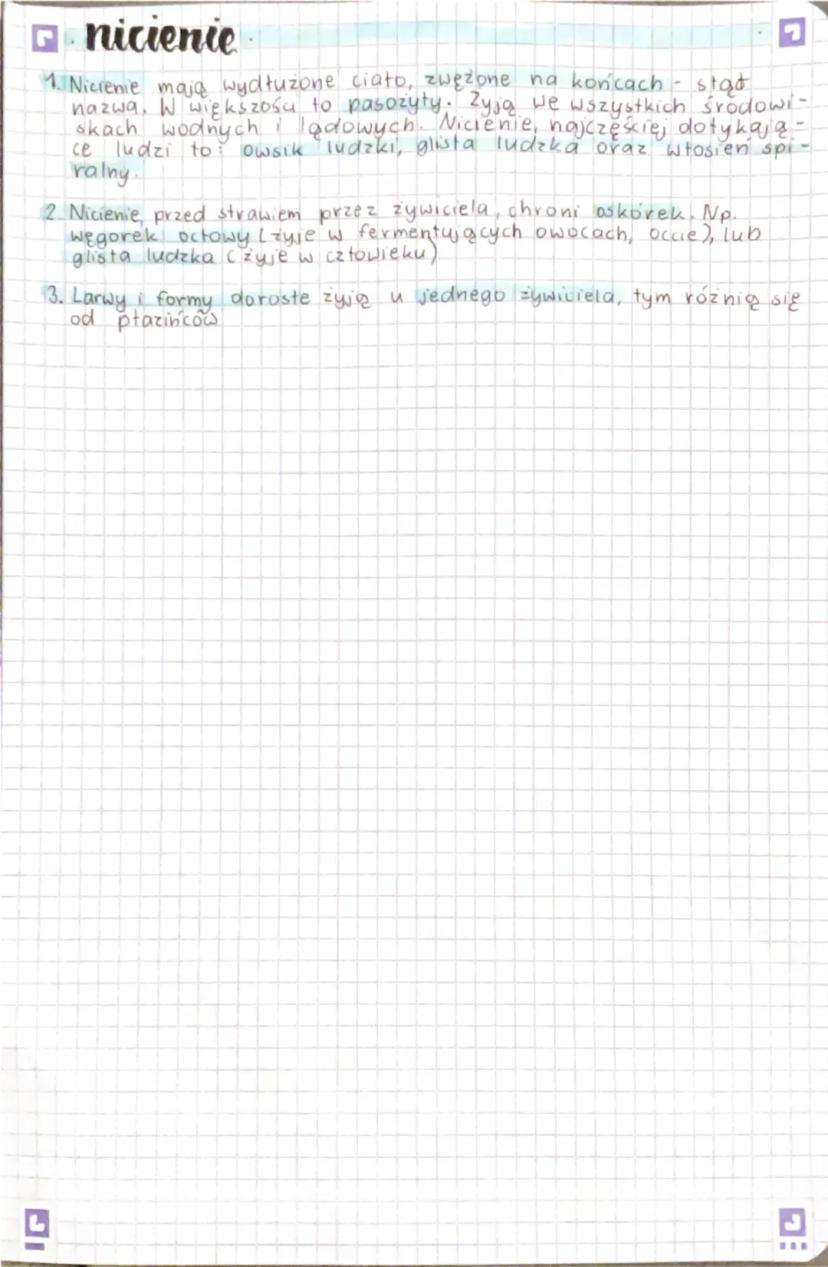 nicienie
1. Nicienie mają wydłużone ciało, zwężone na końcach - stąd
nazwa. W większości to pasożyty. Żyją we wszystkich środowi-
skach wodnych i lądowych. Nicienie, najczęściej dotykają-
ce ludzi to: owsik ludzki, glista ludzka oraz włosień spi-
ralny.
2. Nicienie, przed strawiem przez żywiciela, chroni oskórek. Np.
węgorek octowy (żyje w fermentujących owocach, occie), lub
glista ludzka (żyje w człowieku)
3. Larwy i formy dorosłe żyją u jednego żywiciela, tym różnią się
od płazińców